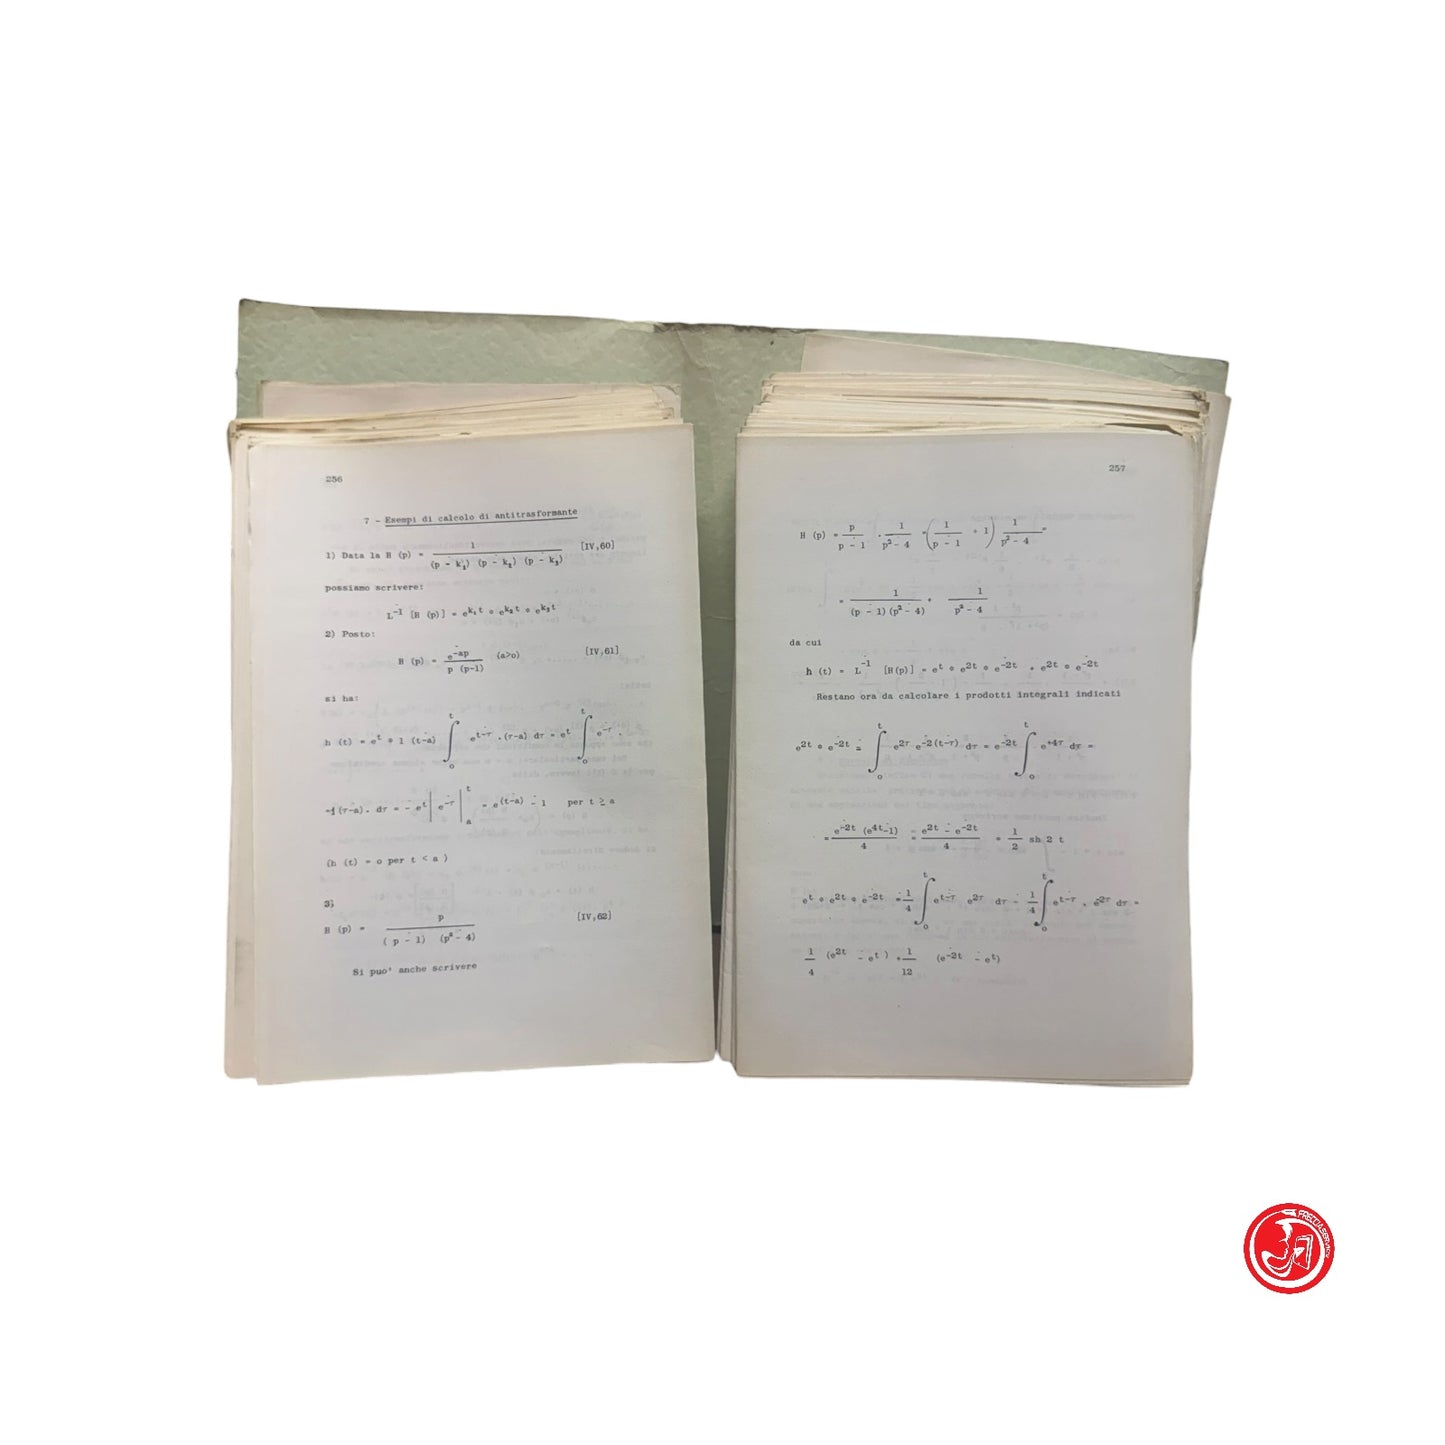 256
7 - Esempi di calcolo di antitrasformante
1) Data la H (p) = 1 / (p - k₁) (p - k₂) (p - k₃) [IV,60]
possiamo scrivere:
L⁻¹ [H (p)] = e^k₁t ∘ e^k₂t ∘ e^k₃t
2) Posto:
H (p) = e^-ap / p (p-1) (a>o) [IV,61]
si ha:
h (t) = e^t ∘ 1 (t-a) ∫₀^t e^t-τ .(τ-a) dτ = e^t ∫₀^t e^-τ .
.1(τ-a). dτ = - e^t | e^-τ |_a^t = e^(t-a) - 1 per t ≥ a
(h (t) = o per t < a )
3)
H (p) = p / ( p - 1) (p² - 4) [IV,62]
Si puo' anche scrivere
257
H (p) = p / p - 1 . 1 / p² - 4 = ( 1 / p - 1 + 1 ) 1 / p² - 4 =
= 1 / (p - 1) (p² - 4) + 1 / p² - 4
da cui
h (t) = L⁻¹ [H(p)] = e^t ∘ e^2t ∘ e^-2t + e^2t ∘ e^-2t
Restano ora da calcolare i prodotti integrali indicati
e^2t ∘ e^-2t = ∫₀^t e^2τ e^-2(t-τ) dτ = e^-2t ∫₀^t e^+4τ dτ =
= e^-2t (e^4t-1) / 4 = e^2t - e^-2t / 4 = 1/2 sh 2 t
e^t ∘ e^2t ∘ e^-2t = 1/4 ∫₀^t e^t-τ e^2τ dτ - 1/4 ∫₀^t e^t-τ . e^-2τ dτ =
1/4 (e^2t - e^t ) + 1/12 (e^-2t - e^t)
FRECCIASERVICE